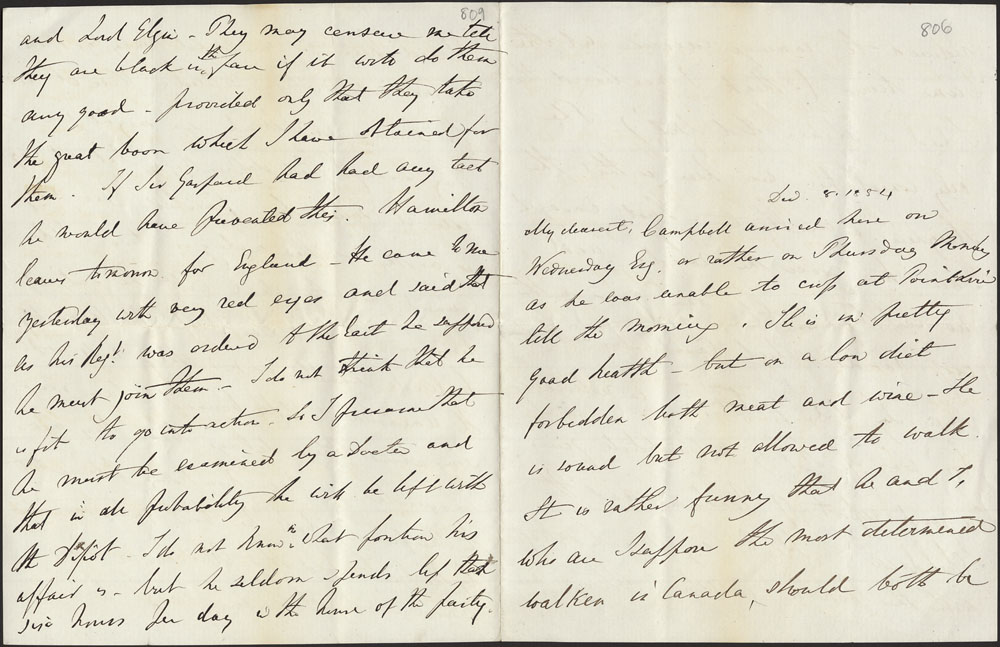 809
and Lord Elgin - They may censure me till
they are black in the face if it will do them
any good - provided only that they take
the great boon which I have obtained for
them. If Sir Gaspard had had any tact
he would have prevented this. Hamilton
leaves tomorrow for England - He came to me
yesterday with very red eyes and said that
as his Regt. was ordered to the East he supposed
he must join them - I do not think that he
is fit to go into action. So I presume that
he must be examined by a Doctor and
that in all probability he will be left with
the Depôt. I do not know in what position his
affair is - but he seldom spends less than
six hours per day in the house of the party.
806
Dec. 8. 1854
My dearest, Campbell arrived here on
Wednesday Evg. or rather on Thursday Morning
as he was unable to cross at Point Levi
till the morning. He is in pretty
good health - but on a low diet
forbidden both meat and wine - He
is sound but not allowed to walk.
It is rather funny that he and I,
who are I suppose the most determined
walkers in Canada, should both be